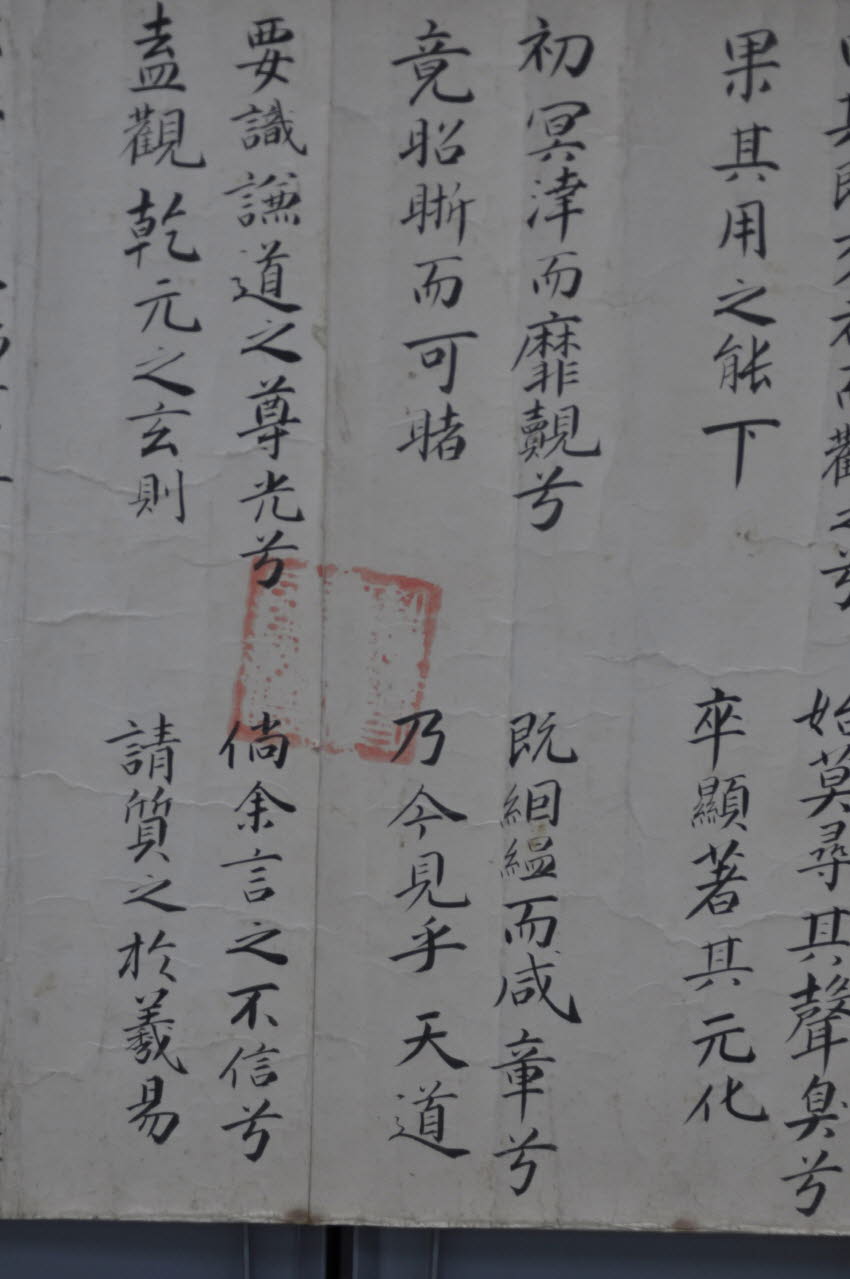 而觀之兮
果其用之能下
始莫尋其聲臭兮
卒顯著其元化
初冥涬而靡覿兮
竟昭晣而可睹
既絪縕而咸章兮
乃今見乎天道
要識謙道之尊光兮
盍觀乾元之玄則
倘余言之不信兮
請質之於羲易